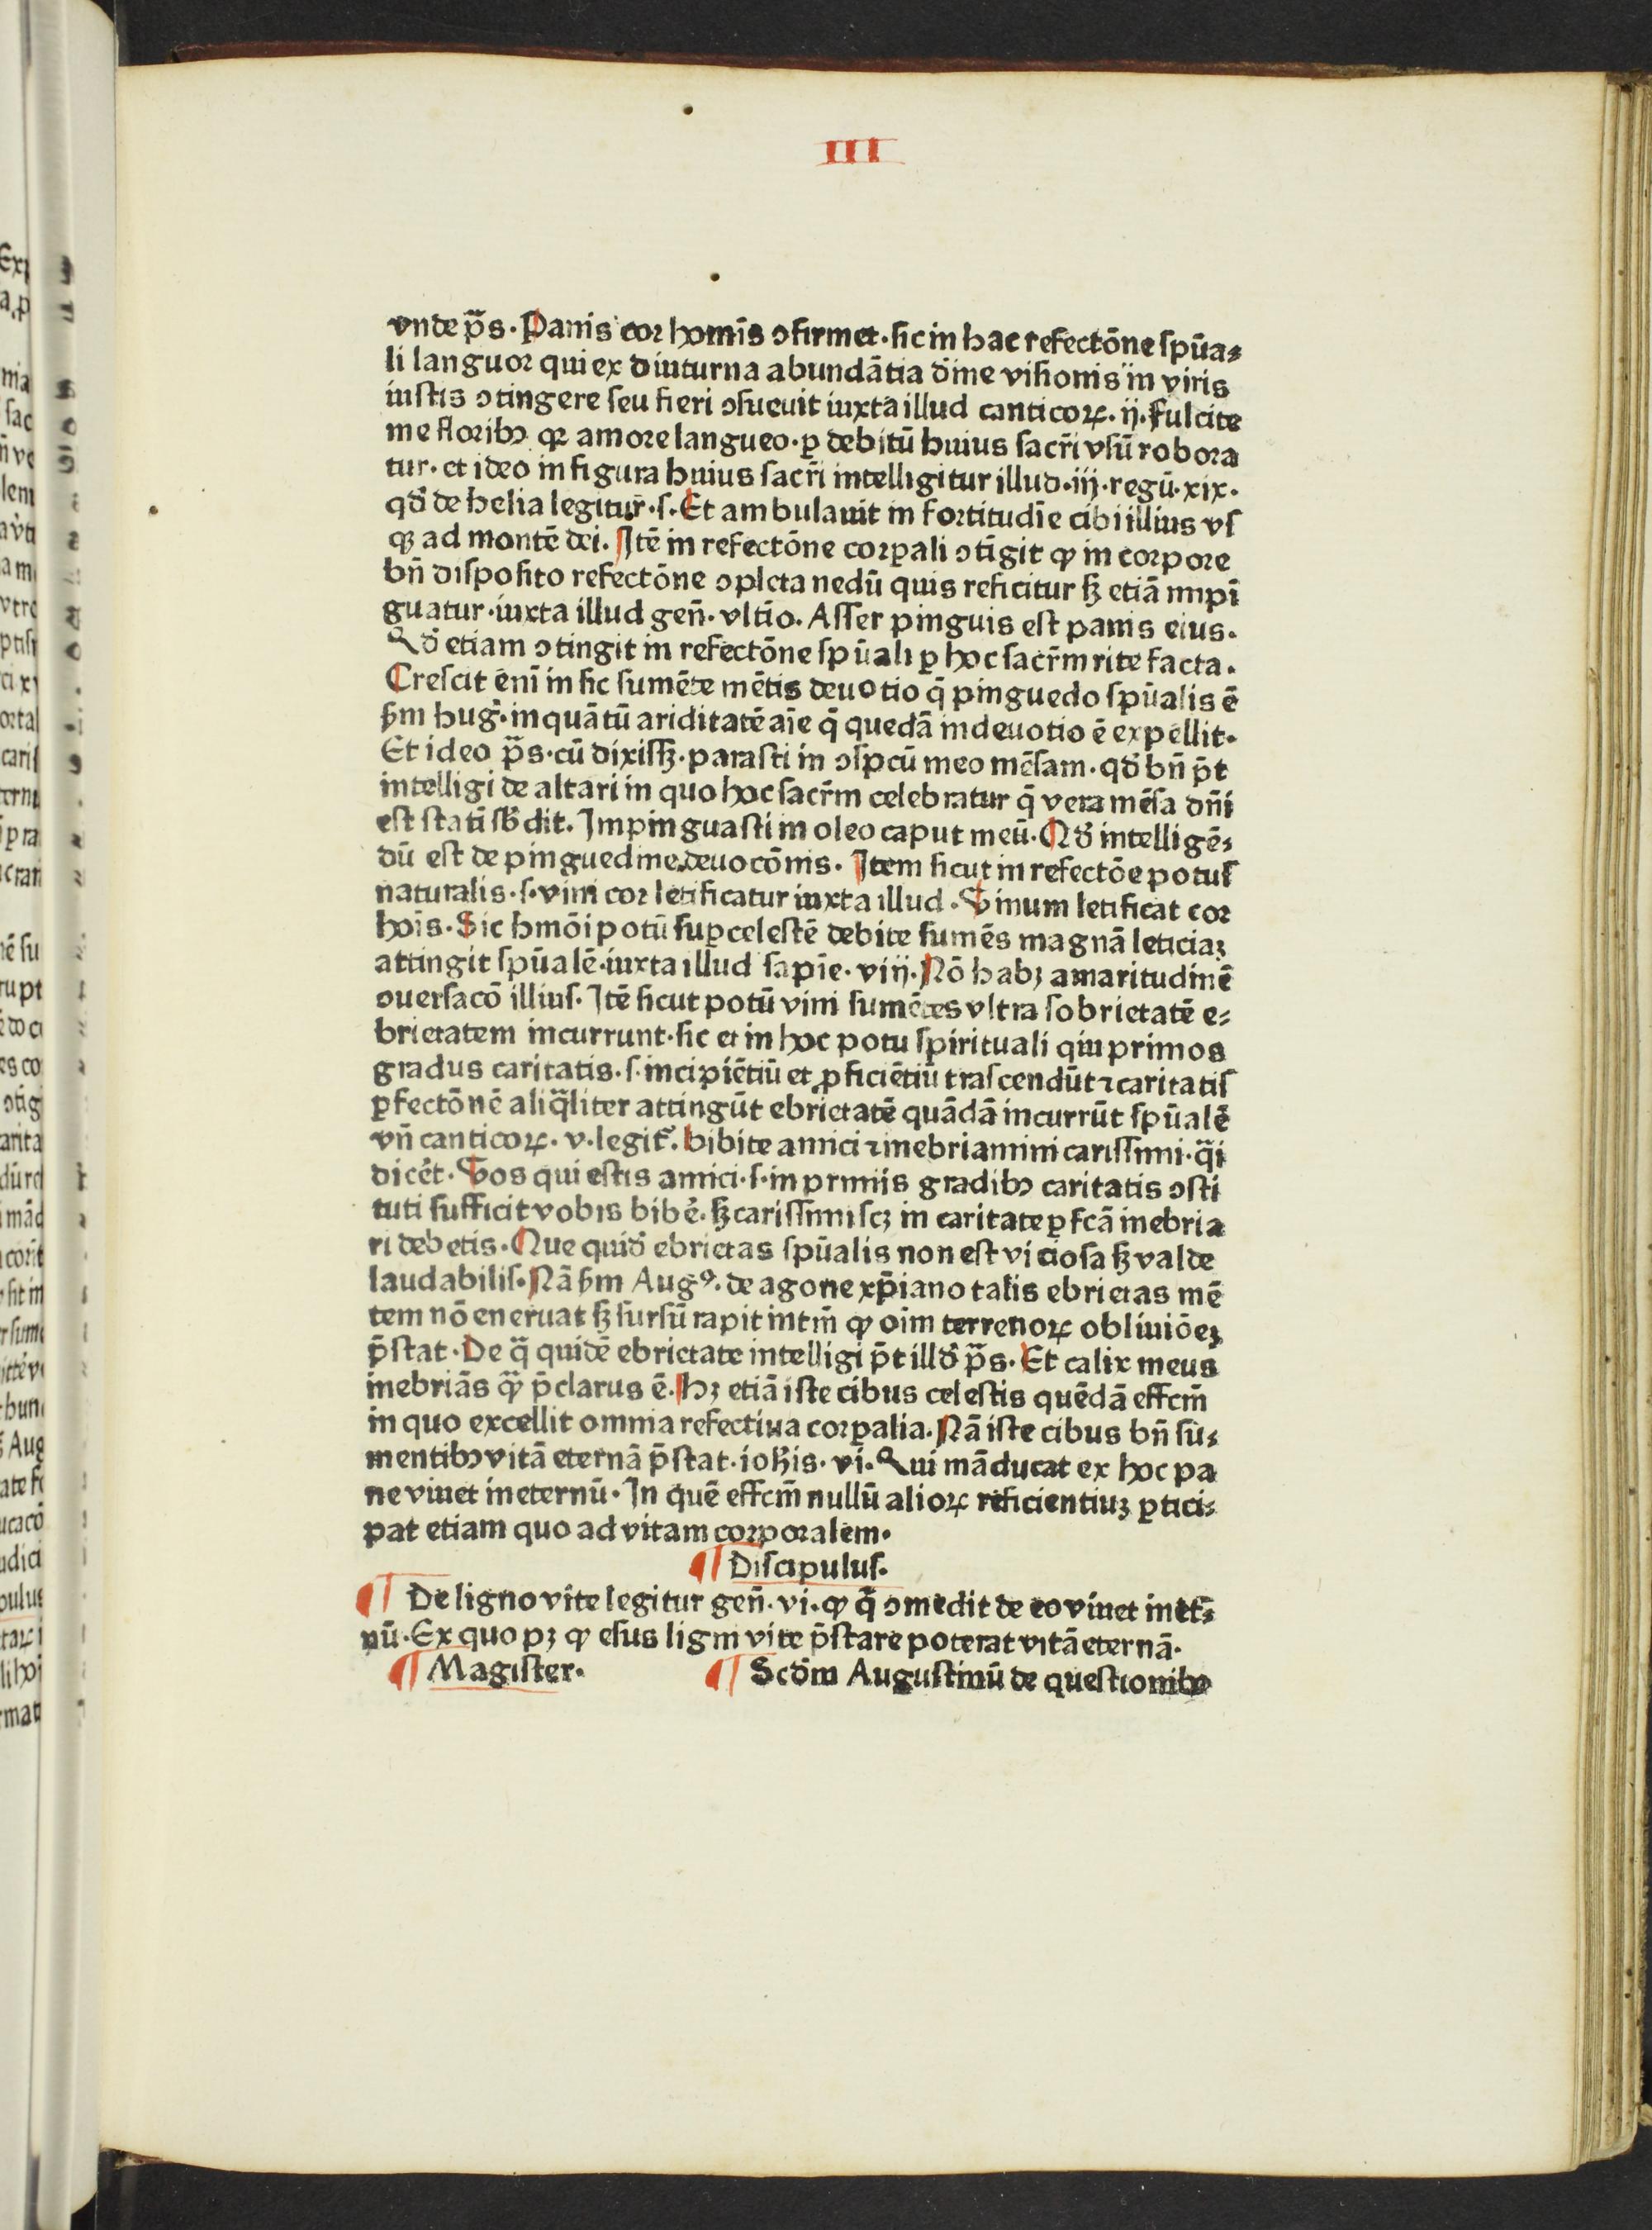 III
vnde p̄s. Panis cor homīs ↄfirmet. sic in hac refectōne spūa⸗
li languor qui ex diuturna abundātia dīne visionis in viris
iustis ↄtingere seu fieri ↄsueuit iuxta illud canticoꝝ. ij. fulcite
me floribꝰ qꝛ amore langueo. ꝑ debitū huius sacr̄i vsū robora
tur. et ideo in figura huius sacr̄i intelligitur illud. iij. regū. xix.
qd̓ de helia legitur. s. Et ambulauit in fortitudīe cibi illius vs
qꝫ ad montē dei. Itē in refectōne corꝑali ↄtīgit ꝙ in corpore
bn̄ disposito refectōne ↄpleta nedū quis reficitur sꝫ etiā impī
guatur. iuxta illud gen̄. vltīo. Asser pinguis est panis eius.
Qd̓ etiam ↄtingit in refectōne spūali ꝑ hoc sacr̄m rite facta.
Crescit enī in sic sumēte mētis deuotio q̄ pinguedo spūalis ē
ẜm hug̓. inquātū ariditatē aīe q̄ quedā indeuotio ē expellit.
Et ideo p̄s. cū dixissꝫ. parasti in ↄspcū meo mēsam. qd̓ bn̄ p̄t
intelligi de altari in quo hoc sacr̄m celebratur q̄ vera mēsa dn̄i
est statī sb̓dit. Impinguasti in oleo caput meū. Qd̓ intelligē⸗
dū est de pinguedine deuocōnis. Item sicut in refectōe potus
naturalis. s. vini cor letificatur iuxta illud. Vinum letificat cor
hoīs. Sic hmōi potū suꝑcelestē debite sumēs magnā leticiaꝫ
attingit spūalē. iuxta illud sapīe. viij. Nō habꝫ amaritudinē
ↄuersacō illius. Itē sicut potū vini sumētes vltra sobrietatē e⸗
brietatem incurrunt. sic et in hoc potu spirituali qui primos
gradus caritatis. s. incipiētiū et ꝓficiētiū trascendūt ⁊ caritatis
ꝑfectōnē aliq̄liter attingūt ebrietatē quādā incurrūt spūalē
vn̄ canticoꝝ. v. legit̓. bibite amici ⁊ inebriamini carissimi. q̄i
dicēt. Vos qui estis amici. s. in primis gradibꝰ caritatis ↄsti
tuti sufficit vobis bibe̓. sꝫ carissimi scꝫ in caritate ꝑfcā inebria
ri debetis. Que quid̓ ebrietas spūalis non est viciosa sꝫ valde
laudabilis. Nā ẜm Augꝰ. de agone xp̄iano talis ebrietas mē
tem nō eneruat sꝫ sursū rapit intm̄ ꝙ oīm terrenoꝝ obliuiōeꝫ
p̄stat. De q̄ quidē ebrietate intelligi p̄t illd̓ p̄s. Et calix meus
inebriās q̄ꝫ p̄clarus ē. Hꝫ etiā iste cibus celestis quēdā effcm̄
in quo excellit omnia refectiua corꝑalia. Nā iste cibus bn̄ su⸗
mentibꝰ vitā eternā p̄stat. ioh̄is. vi. Qui māducat ex hoc pa
ne viuet ineternū. In quē effcm̄ nullū alioꝝ reficientiuꝫ ꝑtici⸗
pat etiam quo ad vitam corporalem.
¶ Discipulus.
¶ De ligno vite legitur gen̄. vi. ꝙ q̄ ↄmedit de eo viuet inet̄⸗
nū. Ex quo pꝫ ꝙ esus ligni vite p̄stare poterat vitā eternā.
¶ Magister. ¶ Scdm̄ Augustinū de questionibꝰ